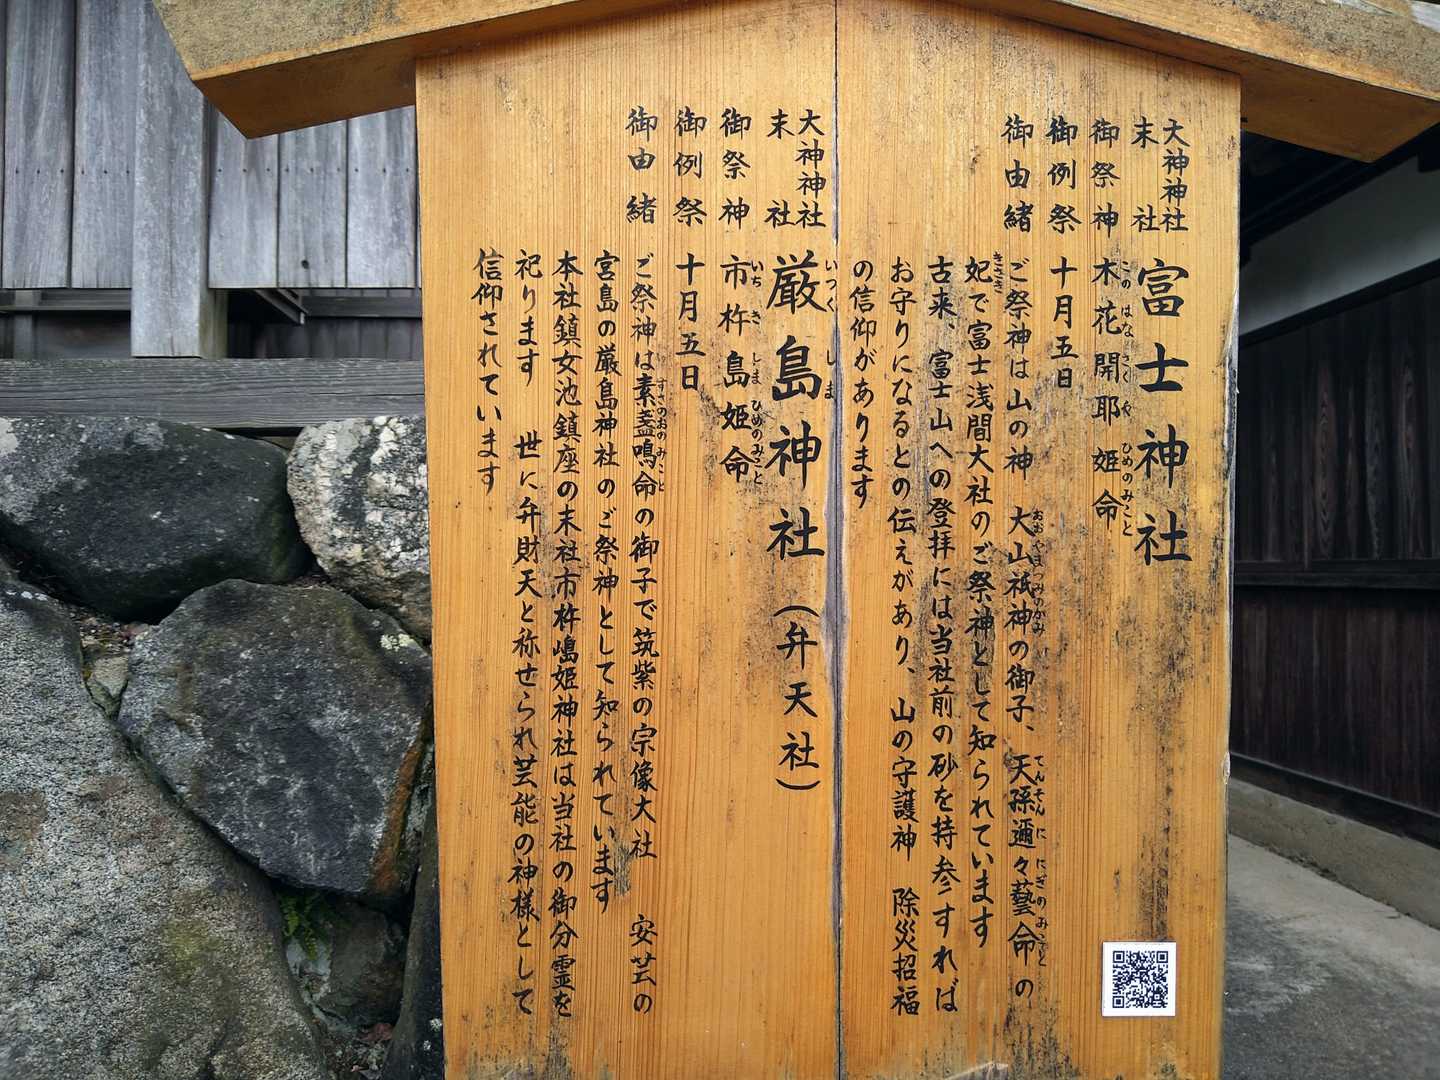 大神神社
末社
富士神社
御祭神 木花開耶姫命
このはなさくやひめのみこと
御例祭 十月五日
御由緒 ご祭神は山の神 大山祇神の御子、天孫邇々藝命の
おおやまつみのかみ てんそんににぎのみこと
妃で富士浅間大社のご祭神として知られています
きさき
古来、富士山への登拝には当社前の砂を持参すれば
お守りになるとの伝えがあり、山の守護神 除災招福
の信仰があります
大神神社
末社
厳島神社(弁天社)
いつくしま
御祭神 市杵島姫命
いちきしまひめのみこと
御例祭 十月五日
御由緒 ご祭神は素盞鳴命の御子で筑紫の宗像大社 安芸の
すさのおのみこと
宮島の厳島神社のご祭神として知られています
本社鎮女池鎮座の末社市杵嶋姫神社は当社の御分霊を
祀ります 世に弁財天と称せられ芸能の神様として
信仰されています